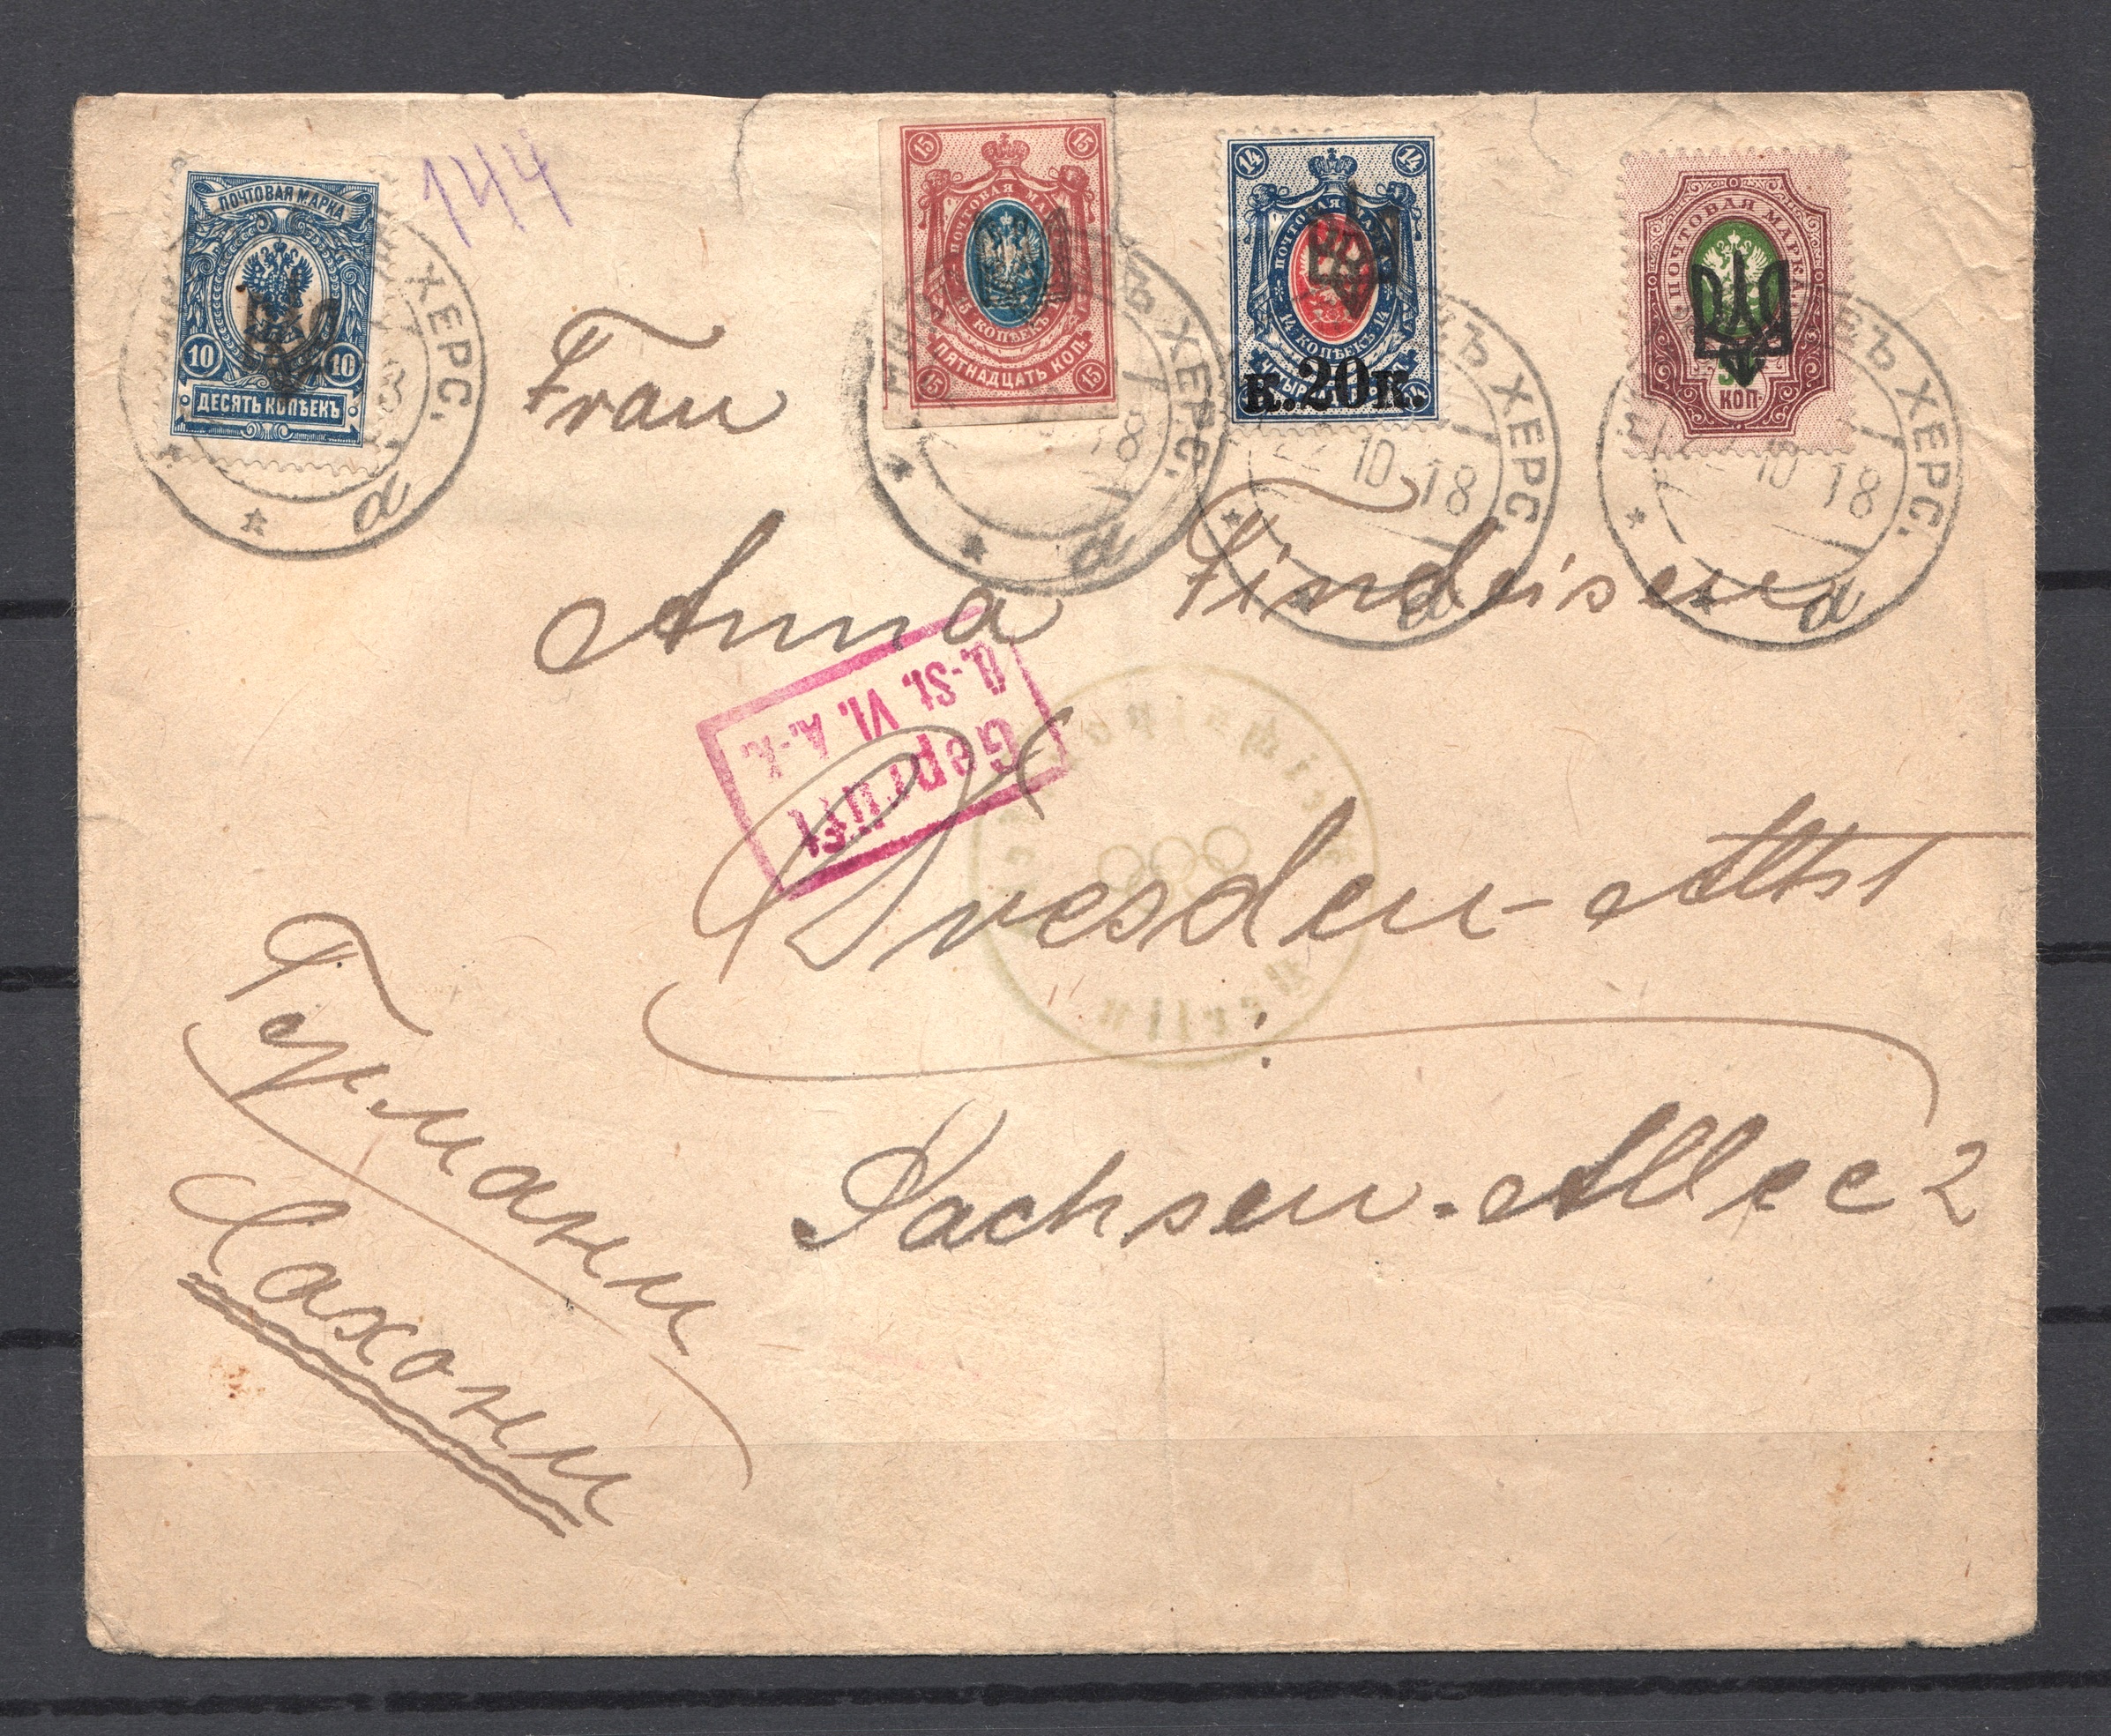 144
ПОЧТОВАЯ МАРКА
10 10
ДЕСЯТЬ КОПѢЕКЪ
ХЕРС.
а
15 15
ПОЧТОВАЯ МАРКА
15 КОПѢЕКЪ 15
ПЯТНАДЦАТЬ КОП.
15 15
Ъ ХЕРС.
18
а
14 14
ПОЧТОВАЯ МАРКА
14 КОПѢЕКЪ 14
к.20к.
Ъ ХЕРС.
22 10 18
а
ПОЧТОВАЯ МАРКА
КОП.
Ъ ХЕРС.
10 18
а
Frau
Anna Findeisen
Geprüft
Ü.-St. VI. A.-K.
Dresden-Altst
Sachsen-Allee 2
Германи
Сахони
Berlin